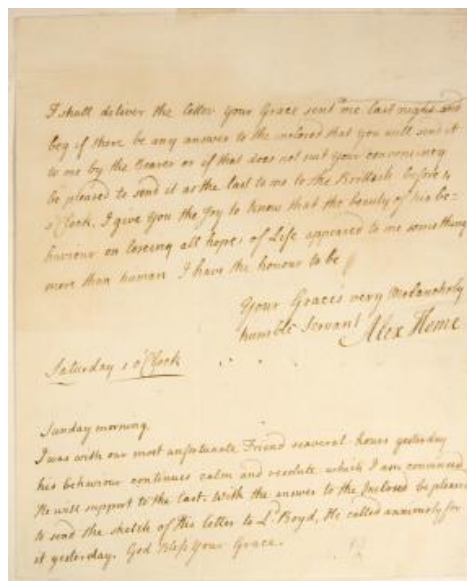 I shall deliver the letter your Grace sent me last night and
beg if there be any answer to the inclosed that you will send it
to me by the Bearer or if that does not suit your conveniency
be pleased to send it as the last to me to the before
o'Clock. I give you the Joy to know that the beauty of his be=
haviour on loseing all hopes of Life appeared to me something
more than human I have the honour to be
Your Grace's very Melancholy
humble Servant Alex Home
Saturday o'Clock
Sunday morning.
I was with our most unfortunate Friend seaveral hours yesterday
his behaviour continues calm and resolute which I am convinced
He will support to the last. With the answer to the Inclosed be pleased
to send the sketch of His letter to Ld. Boyd, He called anxiously for
it yesterday. God Bless Your Grace.